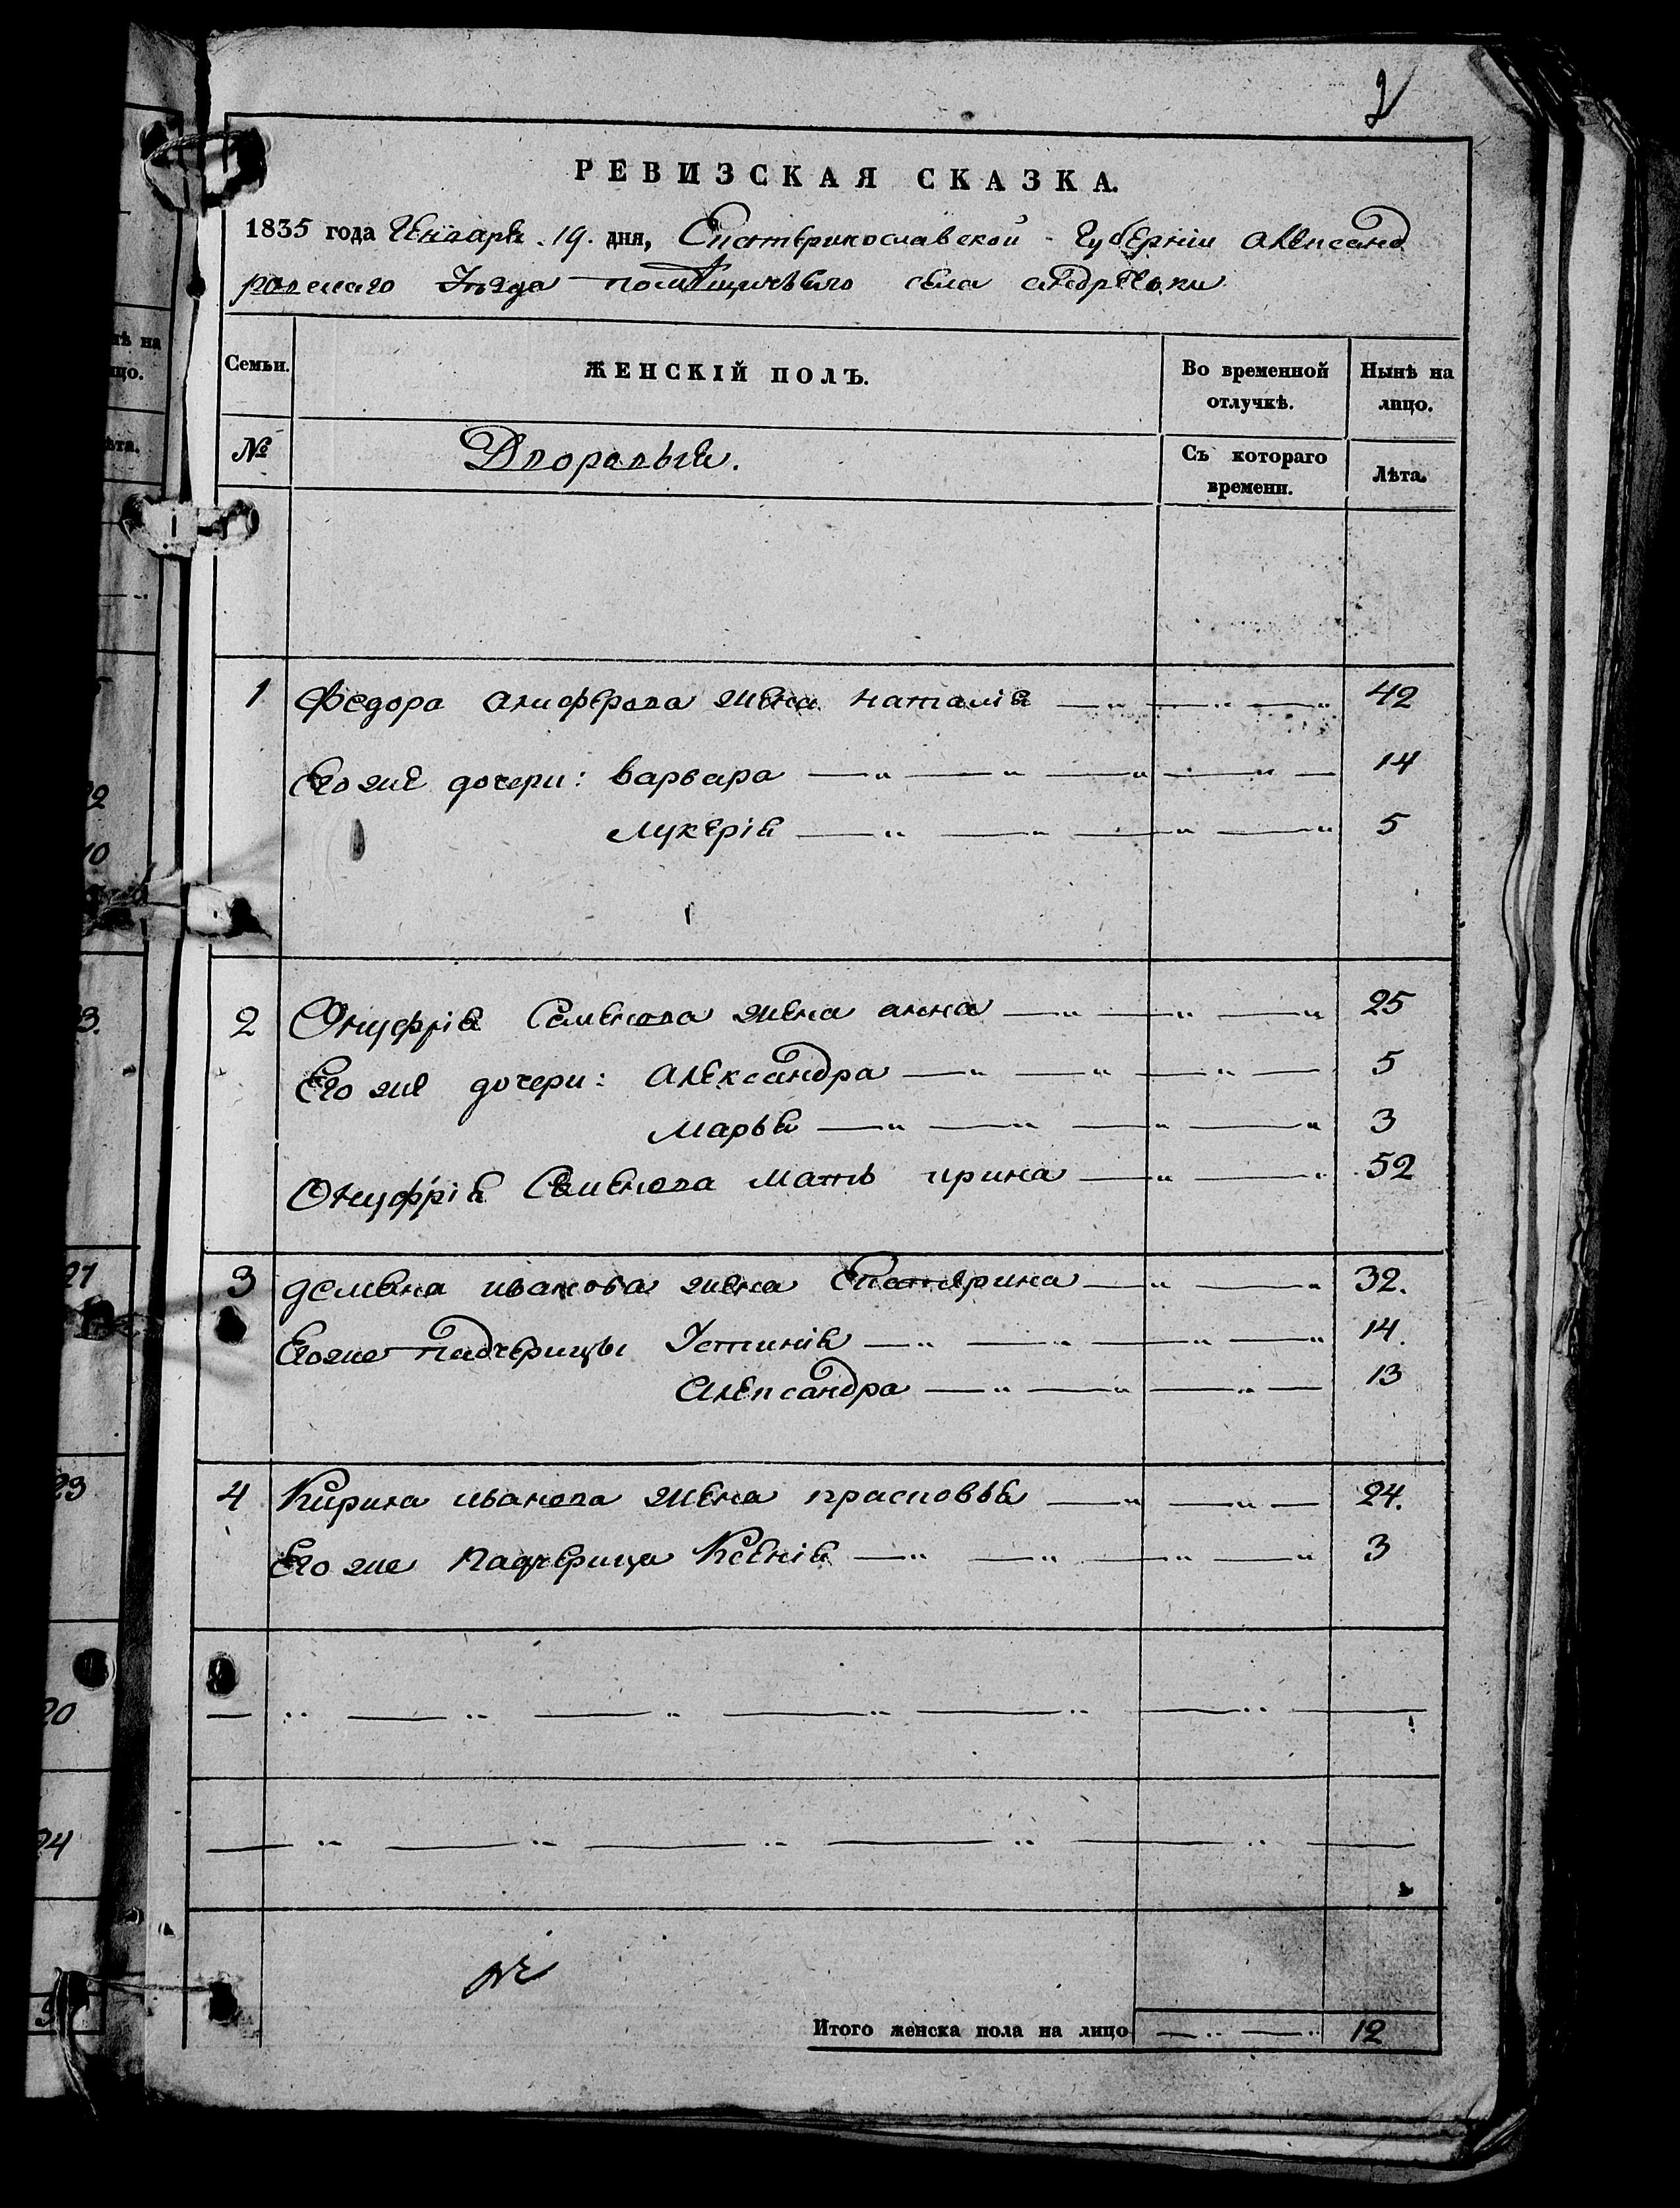 2
РЕВИЗСКАЯ СКАЗКА.
1835 года Генваря 19. дня, Екатеринославской Губерніи Александ
ровскаго Уѣзда помѣщичьяго села Андрѣевки
Семьи.
ЖЕНСКІЙ ПОЛЪ.
Во временной отлучкѣ.
Нынѣ на лицо.
№
Дворовыя.
Съ котораго времени.
Лѣта.
1 Федора Алиферова жена Наталія 42
Его же дочери: Варвара 14
Лукерія 5
2 Онуфрія Семенова жена Анна 25
Его же дочери: Александра 5
Марья 3
Онуфрія Семенова мать Ирина 52
3 Демена Иванова жена Екатерина 32.
Его же падчерицы Устинія 14.
Александра 13
4 Кирила Иванова жена Прасковья 24.
Его же падчерица Ксенія 3
Итого женска пола на лицо 12